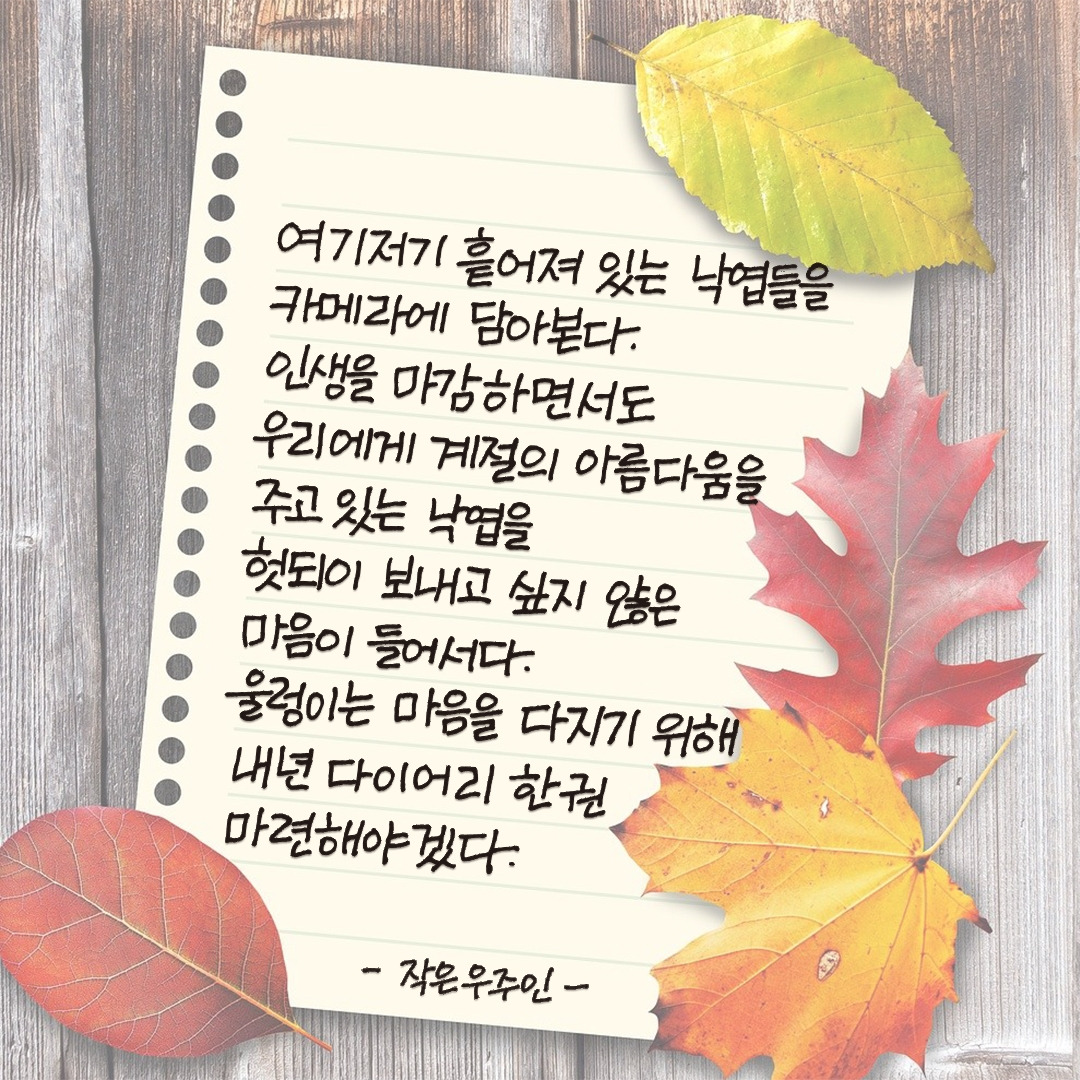 여기저기 흩어져 있는 낙엽들을
카메라에 담아본다.
인생을 마감하면서도
우리에게 계절의 아름다움을
주고 있는 낙엽을
헛되이 보내고 싶지 않은
마음이 들어서다.
울렁이는 마음을 다지기 위해
내년 다이어리 한권
마련해야겠다.
- 작은우주인 -